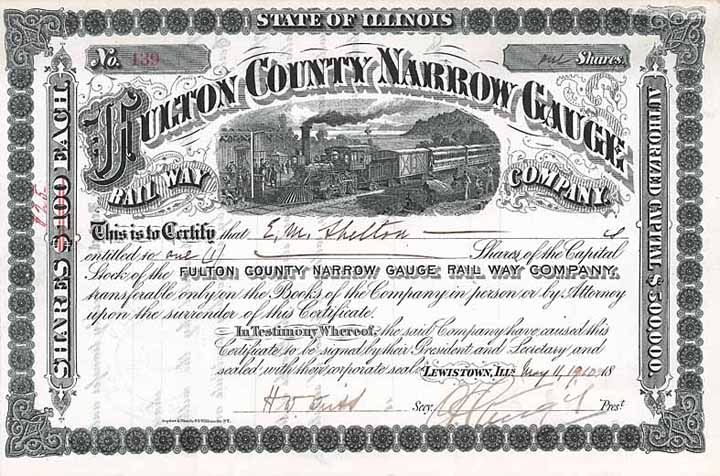 STATE OF ILLINOIS
No. 139
one Shares.
FULTON COUNTY NARROW GAUGE
RAIL WAY COMPANY.
SHARES $100 EACH
$25
AUTHORIZED CAPITAL $500,000.
This is to Certify that E. M. Shelton is
entitled to one (1) Shares of the Capital
Stock of the FULTON COUNTY NARROW GAUGE RAIL WAY COMPANY.
transferable only on the Books of the Company in person or by Attorney
upon the surrender of this Certificate.
In Testimony Whereof, the said Company have caused this
Certificate to be signed by their President and Secretary and
sealed with their corporate seal
LEWISTOWN, ILLs. May 11, 1910 18
Secy. Prest.